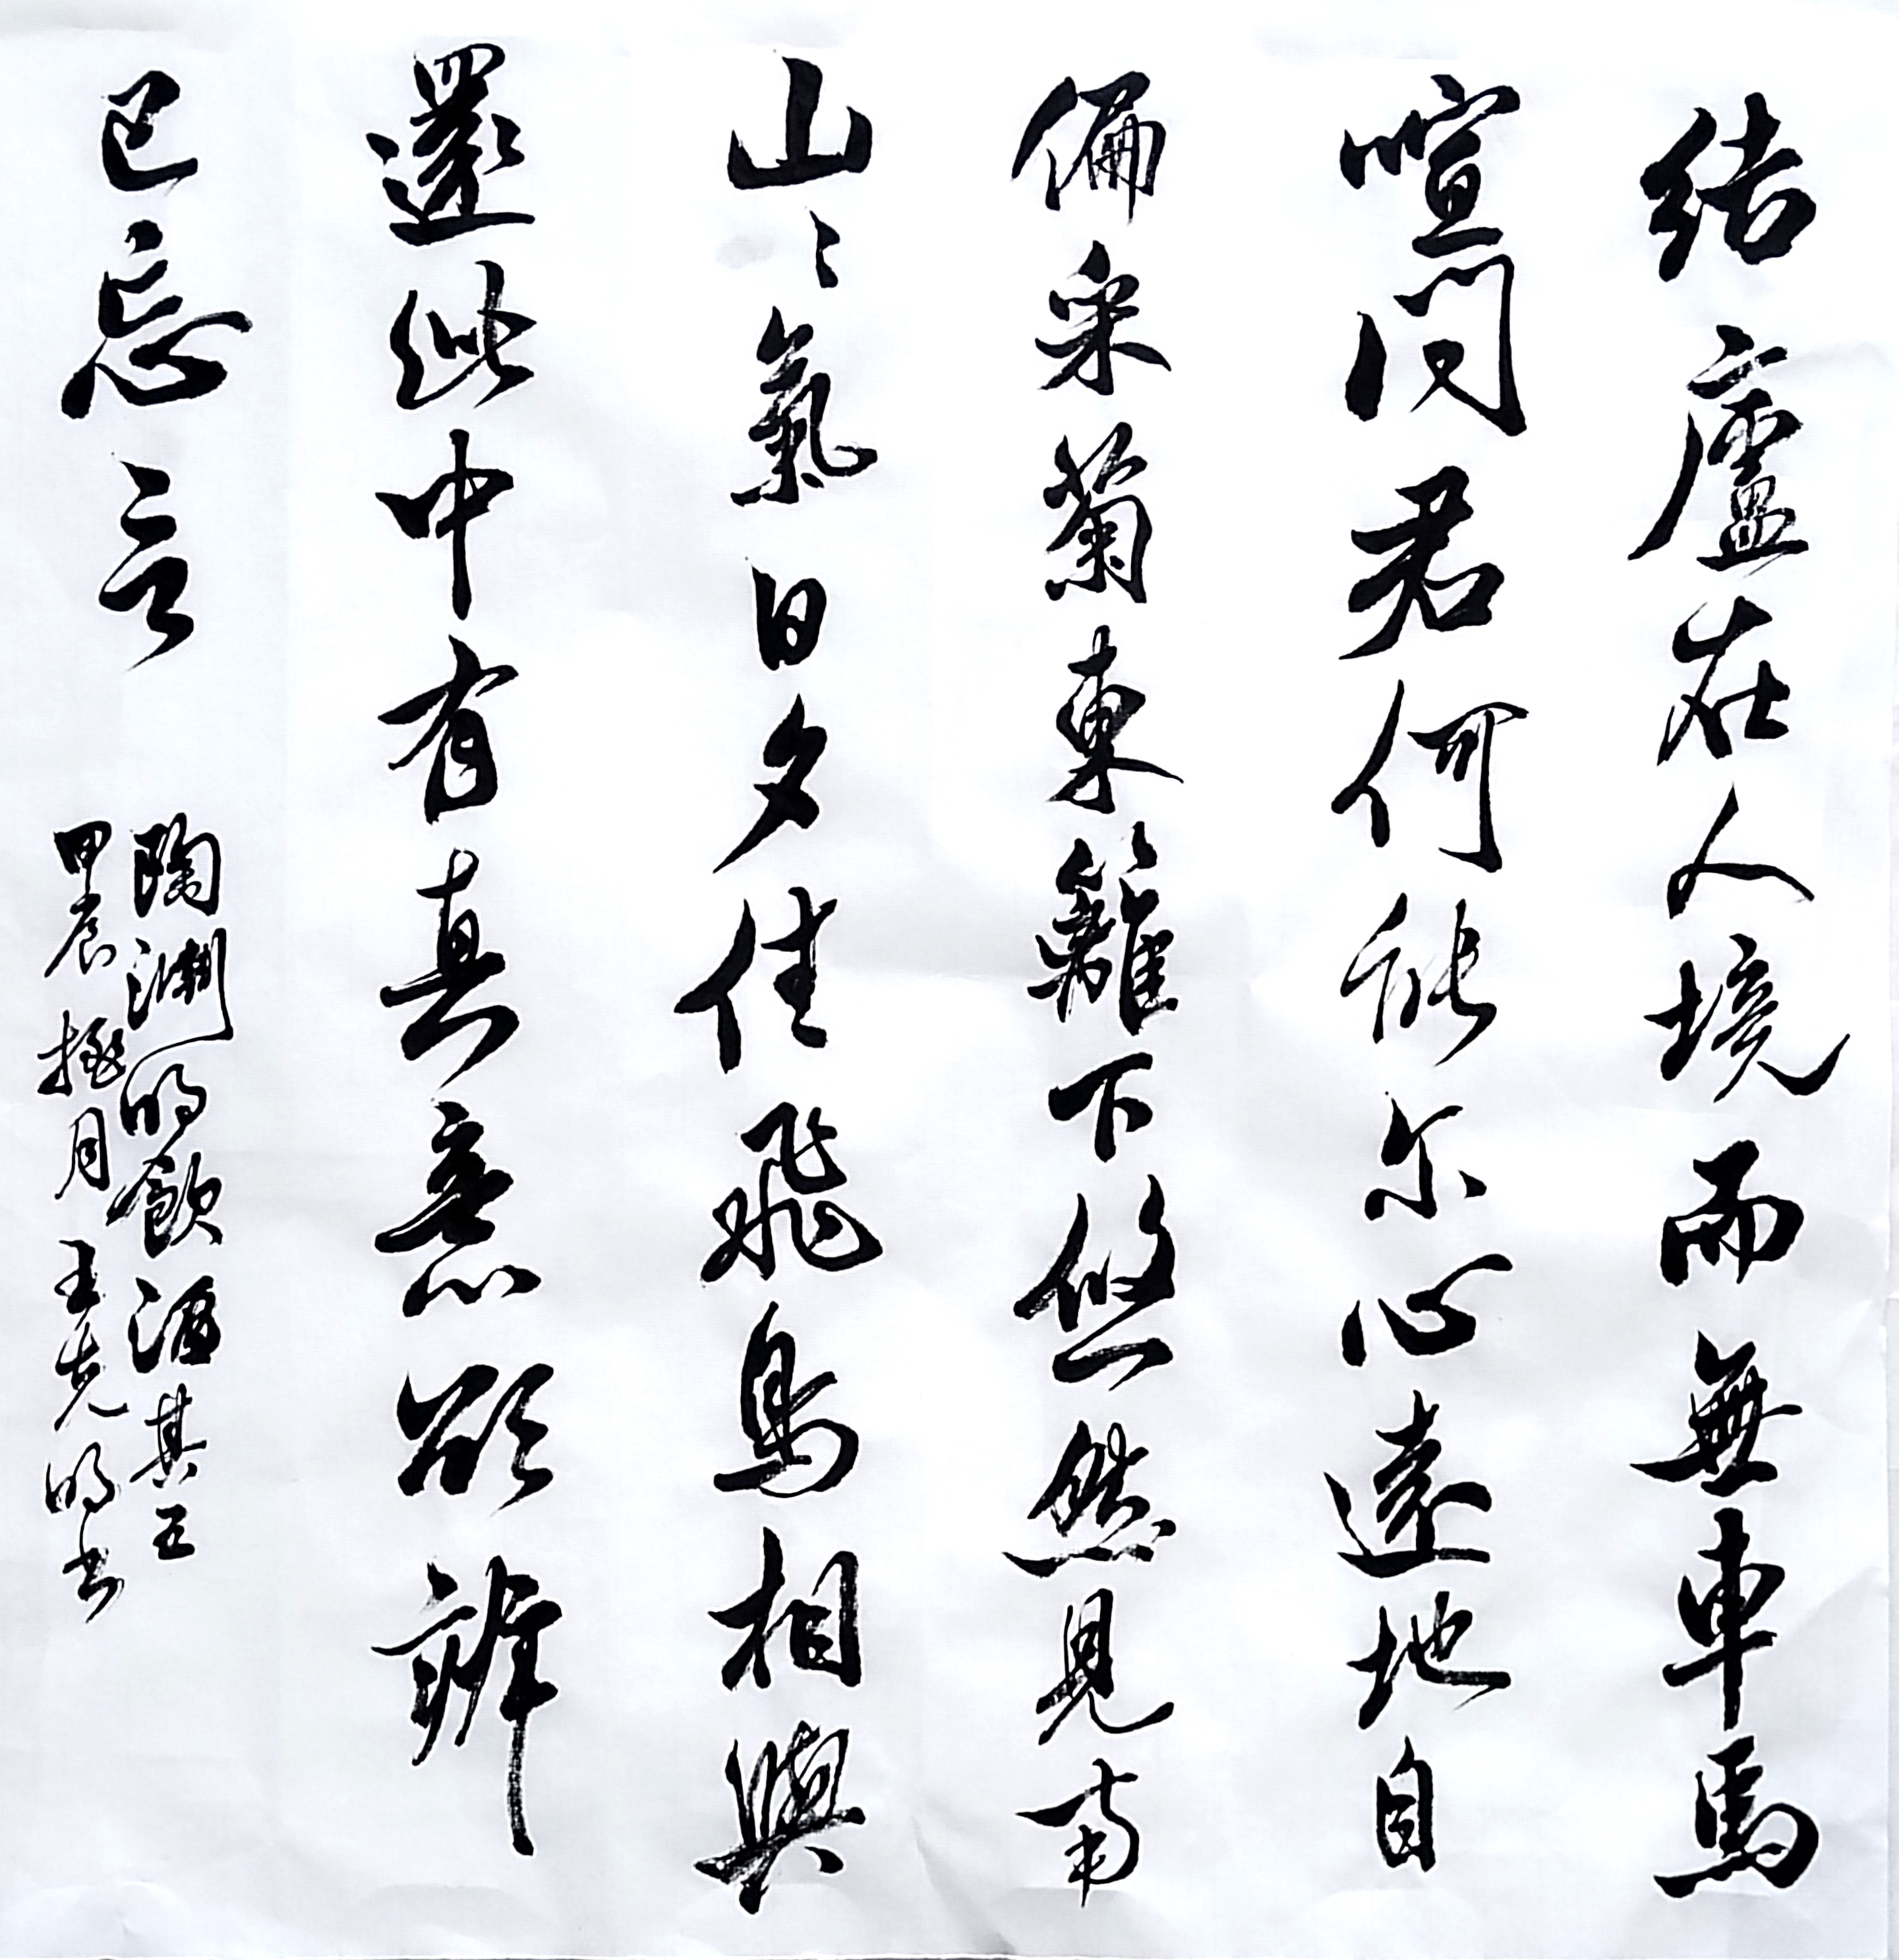 结廬在人境而無車馬
喧问君何能尔心遠地自
偏采菊東籬下悠然見南
山〻氣日夕佳飛鳥相與
還此中有真意欲辨
已忘言
陶淵明飲酒其五
甲辰梅月王克明书